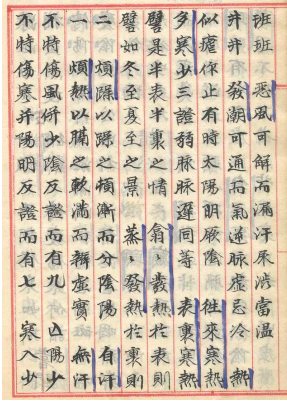 班班不惡風可解而漏汗尿澁當溫
并并發潮可通而氣逆脉虛忌冷熱
似瘧作止有時太陽明厥陰稱往來寒熱
多寒少三證弱脉脉遲同等表裏寒熱
暨是半表半裏之情翕翕發熱於表則
譬如冬至夏至之景蒸蒸發熱於裏則
二煩躁以躁之頓漸而分陰陽有汗
一煩熱以腸之軟滿而辨虛實無汗
不特傷風併少陰反證而有九以陽少
不特傷寒并陽明反證而有七寒入少